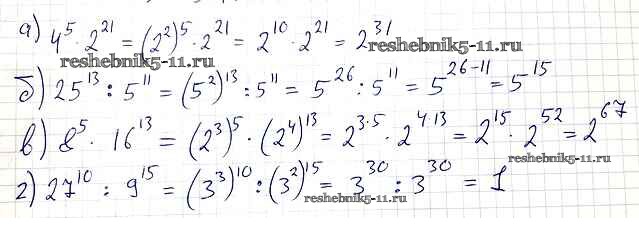 а) 4⁵ · 2²¹ = (2²)⁵ · 2²¹ = 2¹⁰ · 2²¹ = 2³¹
reshebnik5-11.ru
reshebnik5-11.ru
б) 25¹³ : 5¹¹ = (5²)¹³ : 5¹¹ = 5²⁶ : 5¹¹ = 5²⁶⁻¹¹ = 5¹⁵
в) 8⁵ · 16¹³ = (2³)⁵ · (2⁴)¹³ = 2³˙⁵ · 2⁴˙¹³ = 2¹⁵ · 2⁵² = 2⁶⁷
reshebnik5-11.ru
г) 27¹⁰ : 9¹⁵ = (3³)¹⁰ : (3²)¹⁵ = 3³⁰ : 3³⁰ = 1
reshebnik5-11.ru